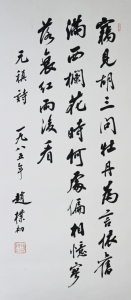 竊見胡三問牡丹為言依舊
滿西欄花時何處偏相憶寥
落衰紅雨後看
元稹詩 一九八五年 趙樸初